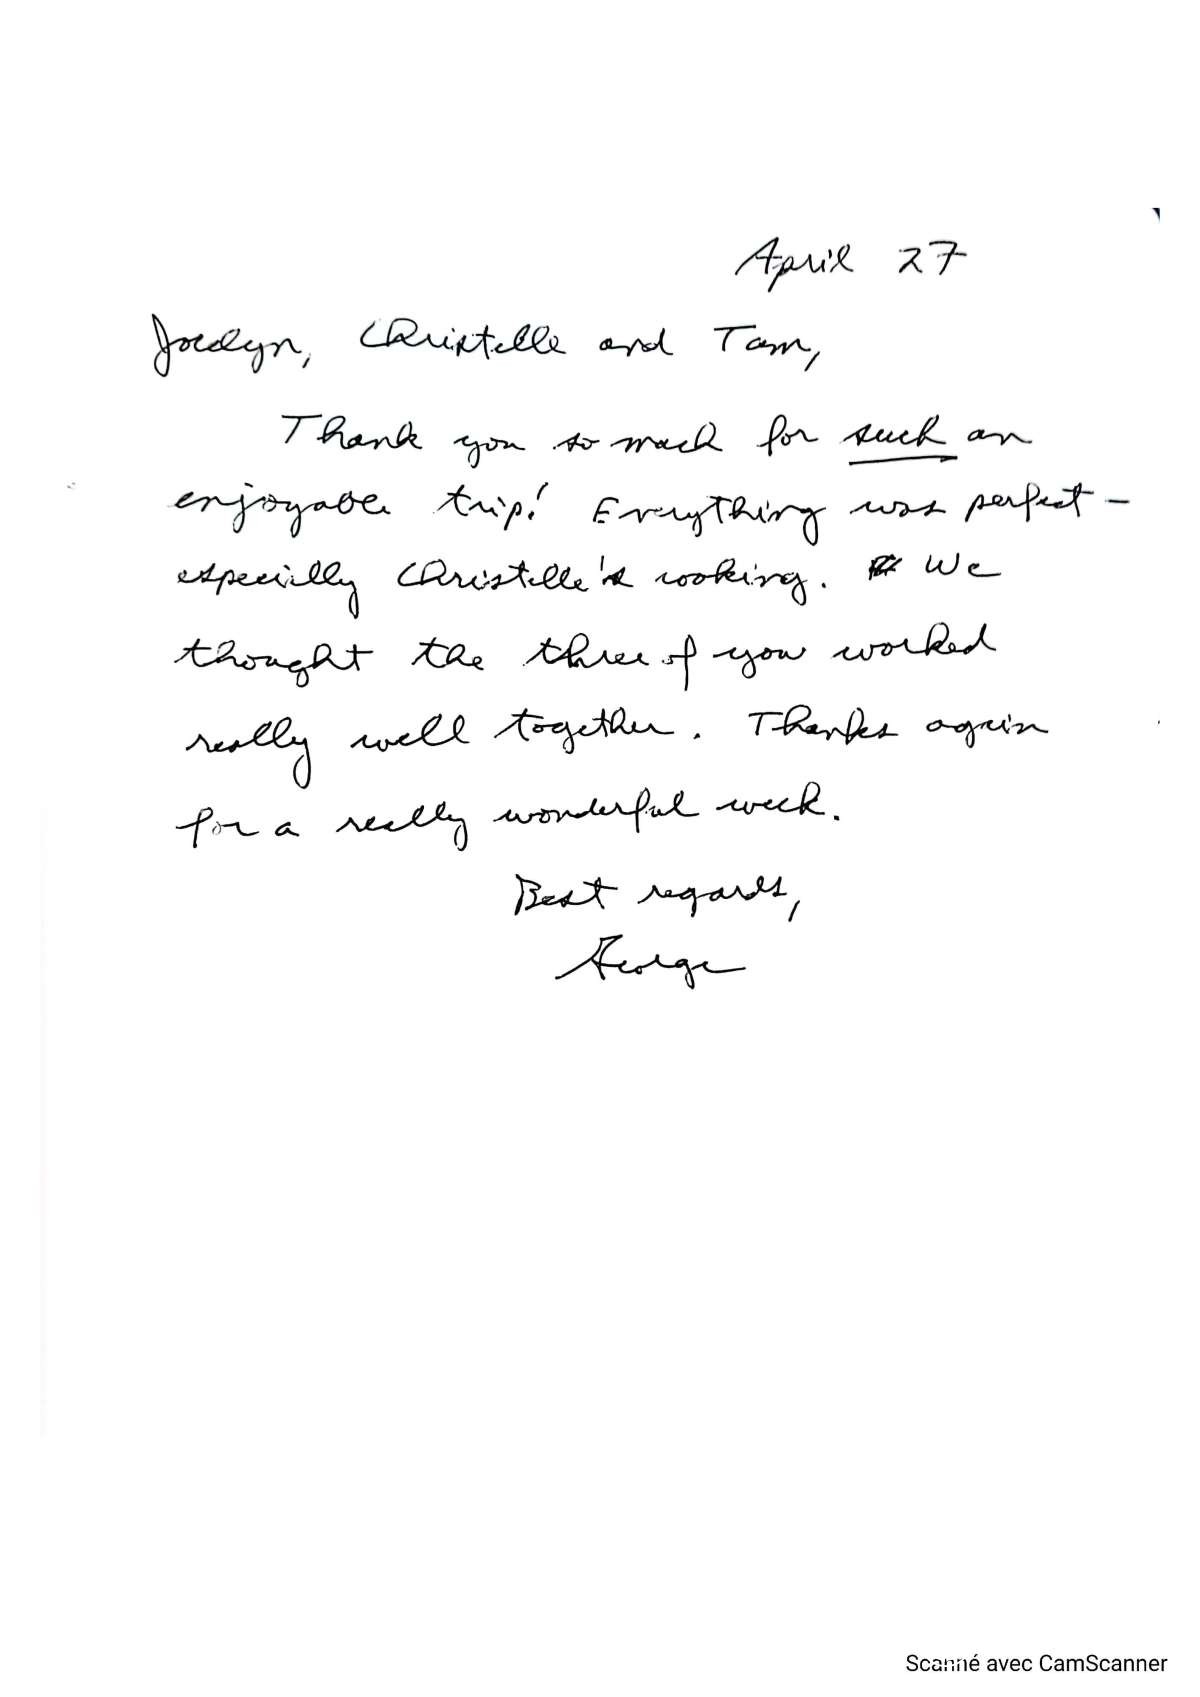 April 27
Jocelyn, Christelle and Tam,
Thank you so much for such an
enjoyable trip! Everything was perfect -
especially Christelle's cooking. We
thought the three of you worked
really well together. Thanks again
for a really wonderful week.
Best regards,
George
Scanné avec CamScanner